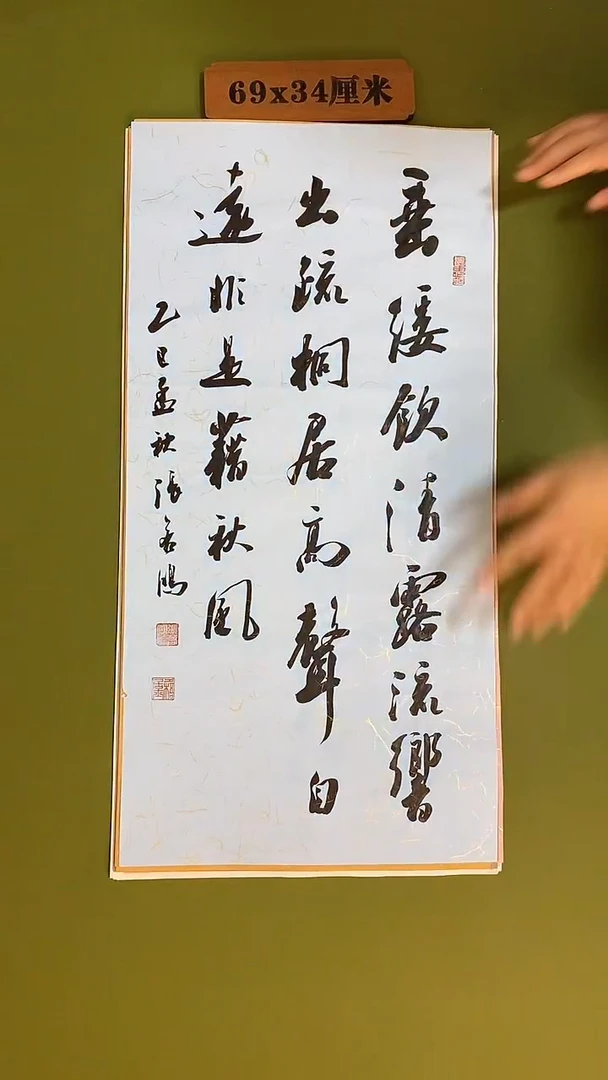 69x34厘米
垂緌飲清露流響
出疏桐居高聲自
遠非是藉秋風
乙巳孟秋張若鴻